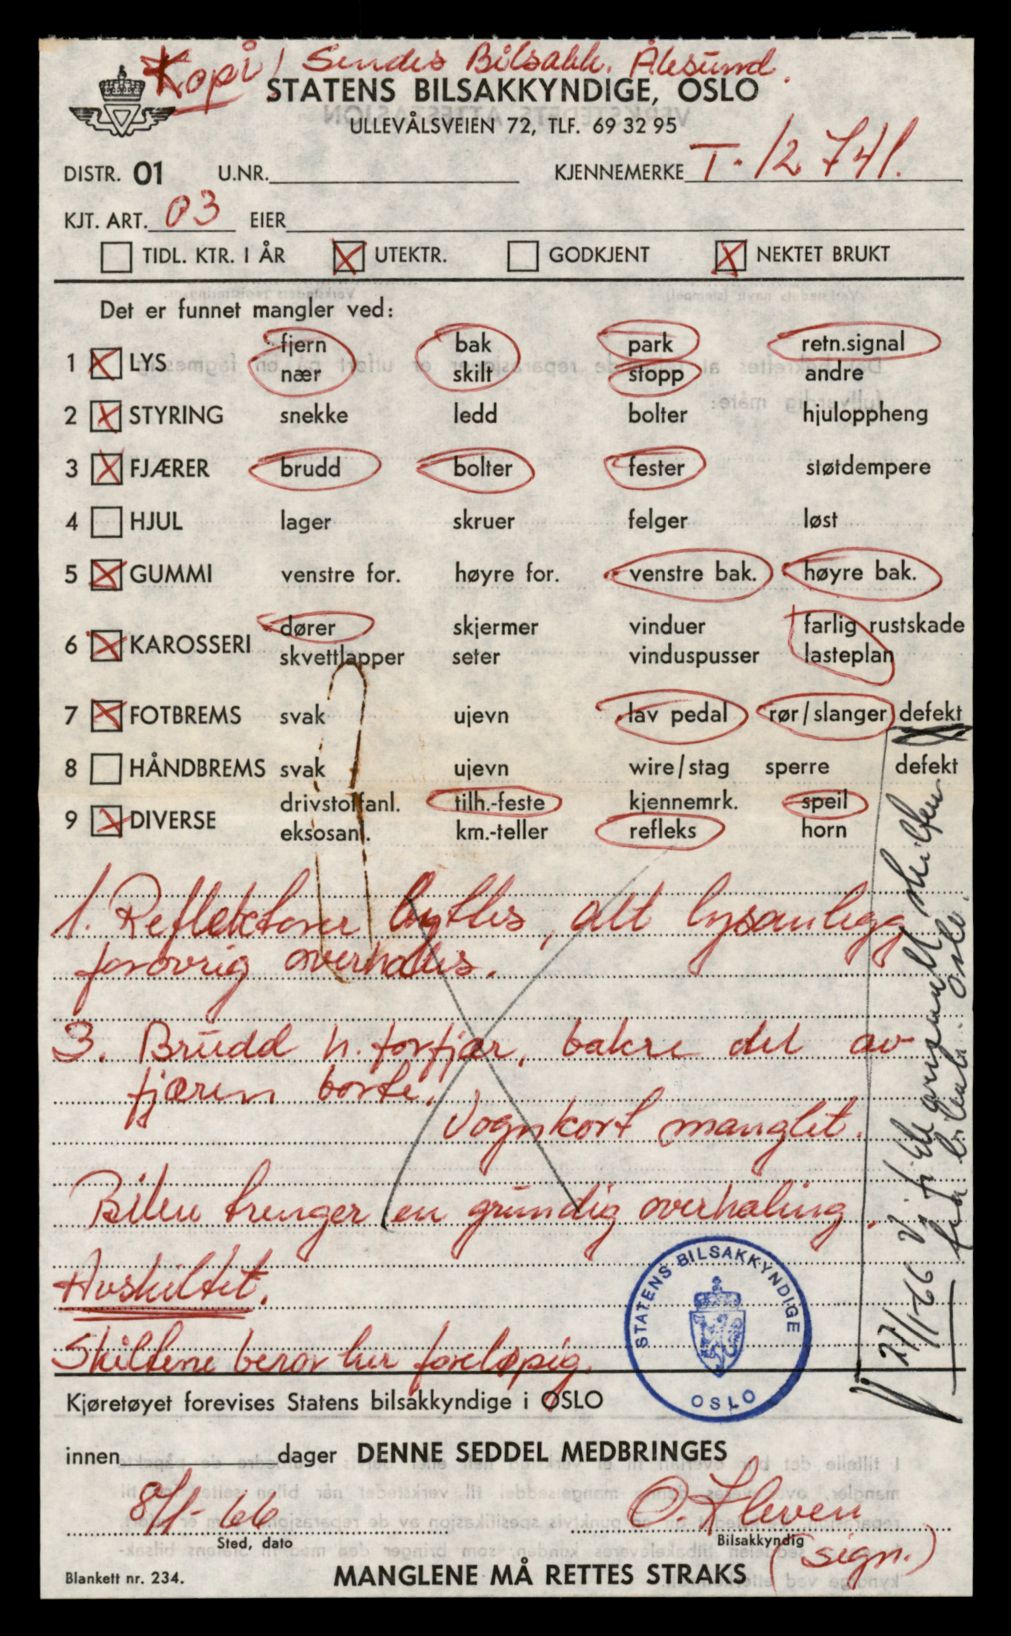 Kopi / Sendes Bilsakk. Ålesund.
STATENS BILSAKKYNDIGE, OSLO
ULLEVÅLSVEIEN 72, TLF. 69 32 95
DISTR. 01 U.NR. KJENNEMERKE T-12741.
KJT. ART. 03 EIER
TIDL. KTR. I ÅR UTEKTR. GODKJENT NEKTET BRUKT
Det er funnet mangler ved:
1 LYS fjern bak park retn.signal
nær skilt stopp andre
2 STYRING snekke ledd bolter hjuloppheng
3 FJÆRER brudd bolter fester støtdempere
4 HJUL lager skruer felger løst
5 GUMMI venstre for. høyre for. venstre bak. høyre bak.
6 KAROSSERI dører skjermer vinduer farlig rustskade
skvettlapper seter vinduspusser lasteplan
7 FOTBREMS svak ujevn lav pedal rør/slanger defekt
8 HÅNDBREMS svak ujevn wire/stag sperre defekt
9 DIVERSE drivstoffanl. tilh.-feste kjennemrk. speil
eksosanl. km.-teller refleks horn
1. Reflektorer byttes, alt lysanlegg
forøvrig overhales.
3. Brudd h. forfjær, bakre del av
fjæren borte.
Vognkort manglet.
Bilen trenger en grundig overhaling.
Avskiltet.
Skiltene beror her foreløpig.
27/1-66 Vi har oversendt skilten
fra bilsakk. Oslo.
STATENS BILSAKKYNDIGE
OSLO
Kjøretøyet forevises Statens bilsakkyndige i OSLO
innen dager DENNE SEDDEL MEDBRINGES
8/1-66 O. Kleven
Sted, dato Bilsakkyndig
(sign.)
Blankett nr. 234. MANGLENE MÅ RETTES STRAKS